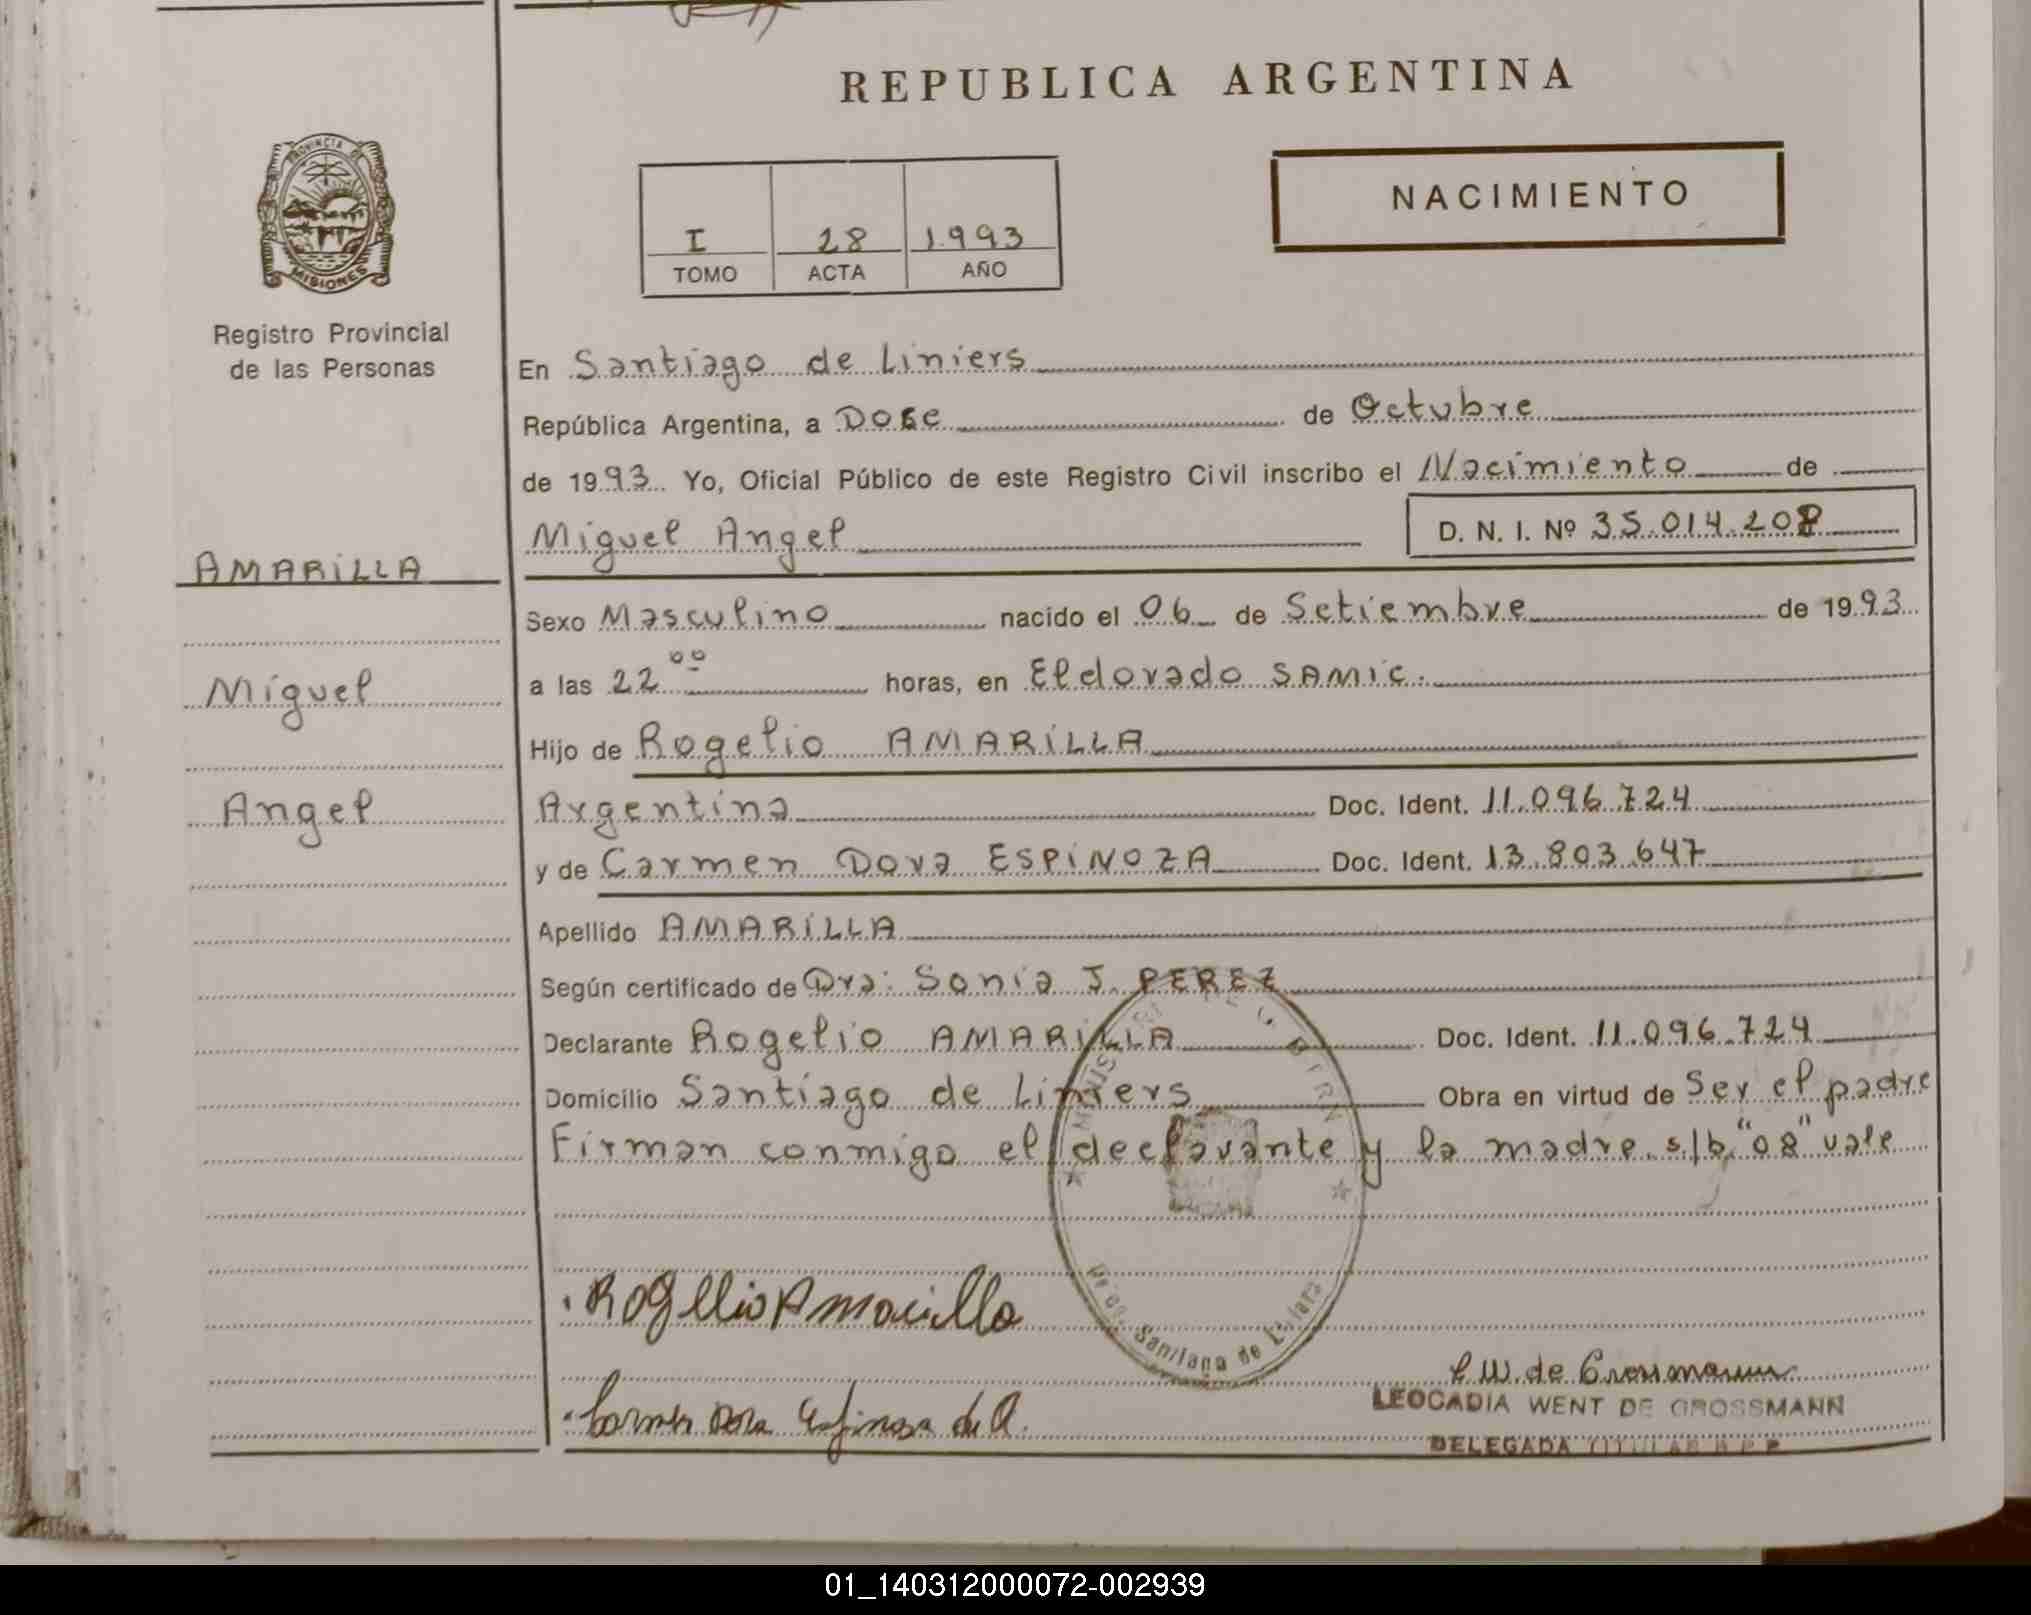 REPUBLICA ARGENTINA
PROVINCIA DE
MISIONES
Registro Provincial
de las Personas
I 28 1993
TOMO ACTA AÑO
NACIMIENTO
En Santiago de Liniers
República Argentina, a Doce de Octubre
de 1993 Yo, Oficial Público de este Registro Civil inscribo el Nacimiento de
AMARILLA
Miguel Angel D. N. I. Nº 35.014.208
Sexo Masculino nacido el 06 de Setiembre de 1993
Miguel
a las 22 00 horas, en Eldorado SAMIC.
Hijo de Rogelio AMARILLA
Angel
Argentina Doc. Ident. 11.096.724
y de Carmen Dora ESPINOZA Doc. Ident. 13.803.647
Apellido AMARILLA
Según certificado de Dra: Sonia J. PEREZ
Declarante Rogelio AMARILLA Doc. Ident. 11.096.724
Domicilio Santiago de Liniers Obra en virtud de Ser el padre
Firman conmigo el declarante y la madre. s/b "08" vale
Rogelio Amarilla
Santiago de
Carmen Dora Espinosa de A.
L W. de Grossmann
LEOCADIA WENT DE GROSSMANN
DELEGADA TITULAR
01_140312000072-002939